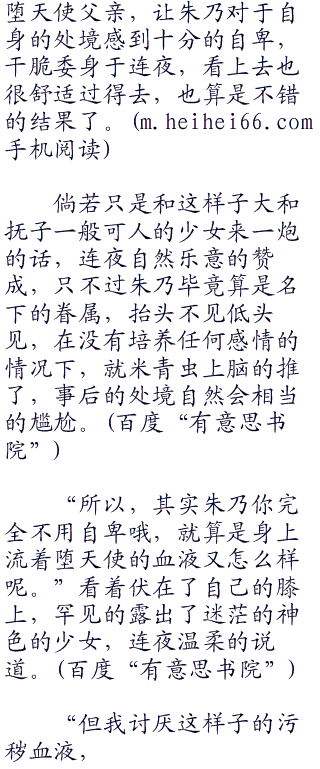 堕天使父亲，让朱乃对于自
身的处境感到十分的自卑，
干脆委身于连夜，看上去也
很舒适过得去，也算是不错
的结果了。(m.heihei66.com
手机阅读)
倘若只是和这样子大和
抚子一般可人的少女来一炮
的话，连夜自然乐意的赞
成，只不过朱乃毕竟算是名
下的眷属，抬头不见低头
见，在没有培养任何感情的
情况下，就米青虫上脑的推
了，事后的处境自然会相当
的尴尬。(百度“有意思书
院”)
“所以，其实朱乃你完
全不用自卑哦，就算是身上
流着堕天使的血液又怎么样
呢。”看着伏在了自己的膝
上，罕见的露出了迷茫的神
色的少女，连夜温柔的说
道。(百度“有意思书院”)
“但我讨厌这样子的污
秽血液，